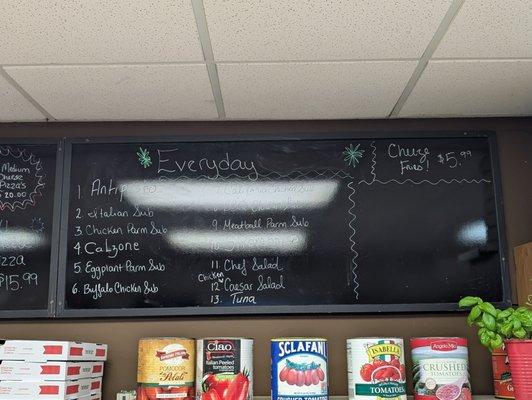 Medium
Cheese
Pizza's
$ 20.00
izza
$15.99
Everyday
1. Anti
2. Italian Sub
3 Chicken Parm Sub
4. Calzone
5 Eggplant Parm Sub
6. Buffalo Chicken Sub
7. Chicken Sub
9. Meatball Parm Sub
11. Chef Salad
Chicken
12. Caesar Salad
13. Tuna
Cheeze
Fries! $5.99
Ciao
Italian Peeled
TOMATOES
SCLAFANI
CRUSHED
TOMATOES
ISABELLA
TOMATOES
Angela Mia
CRUSHED
TOMATOES